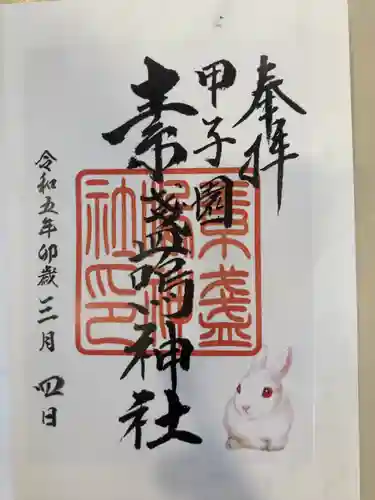 奉拝
甲子園
素盞嗚神社
素盞嗚神社印
令和五年卯歳三月四日